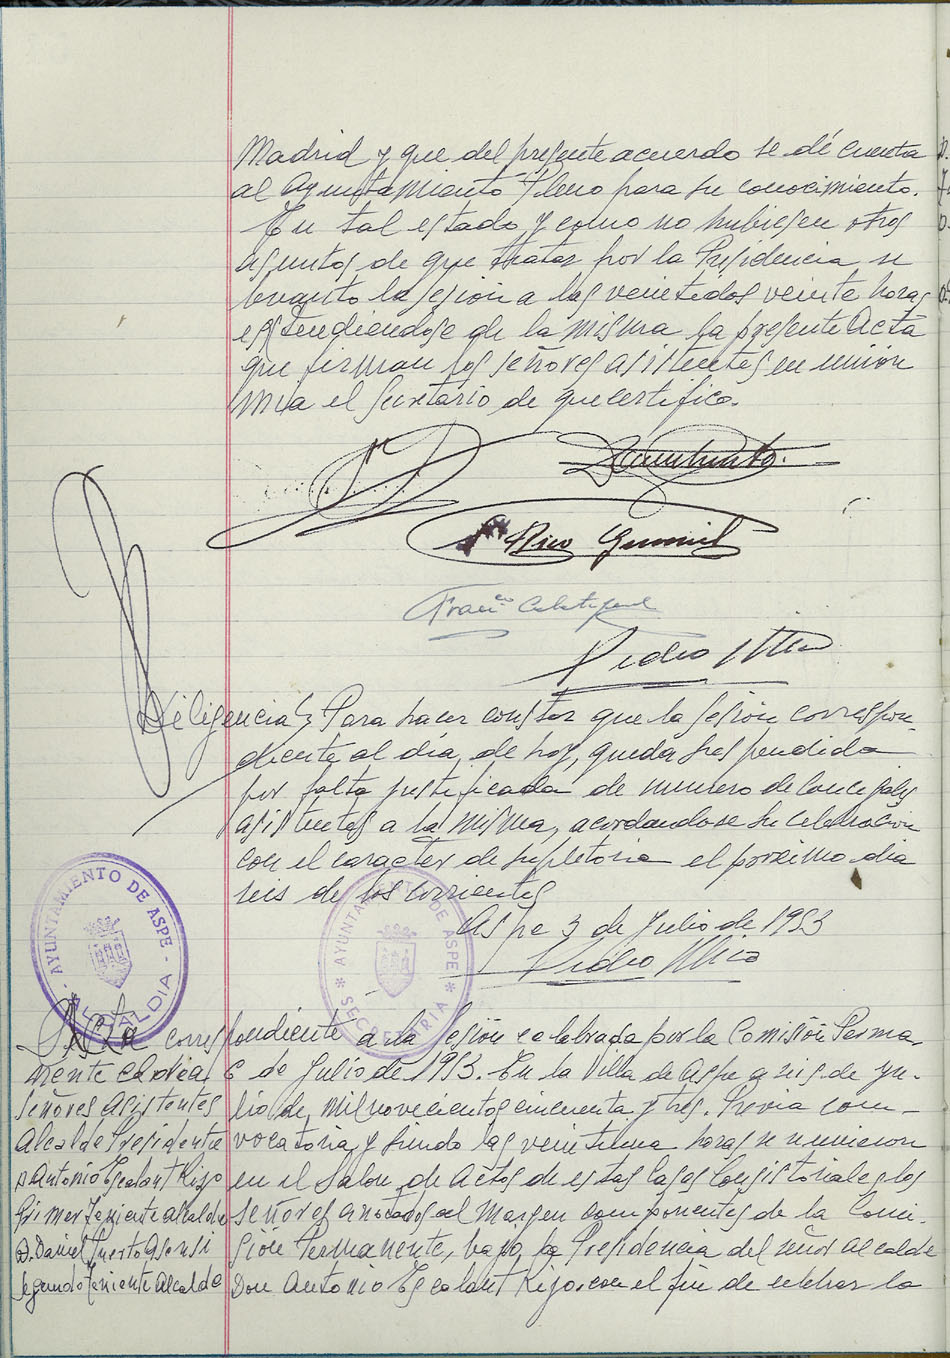 Madrid y que del presente acuerdo se dé cuenta
al Ayuntamiento Pleno para su conocimiento.
En tal estado y como no hubiesen otros
asuntos de que tratar por la Presidencia se
levantó la sesión a las veintidos veinte horas
extendiendose de la misma la presente Acta
que firman los señores asistentes en unión
mia el Secretario de que certifico.
Rico
Franco
Pedro Mico
Diligencia; Para hacer constar que la sesión correspon-
diente al dia, de hoy, queda suspendida
por falta justificada de numero de Concejales
asistentes a la misma, acordandose su celebración
con el caracter de supletoria el proximo dia
seis de los corrientes
Aspe 3 de Julio de 1953
Pedro Mico
- AYUNTAMIENTO DE ASPE -
ALCALDIA
* AYUNTAMIENTO DE ASPE *
SECRETARIA
Acta correspondiente a la sesión celebrada por la Comisión Perma-
nente el dia 6 de Julio de 1953. En la Villa de Aspe a seis de Ju-
lio de mil novecientos cincuenta y tres. Previa con-
vocatoria y siendo las veintiuna horas se reunieron
en el Salon de Actos de estas Casas Consistoriales los
señores anotados al margen componentes de la Comi-
sión Permanente, bajo la Presidencia del señor Alcalde
Don Antonio Escalant Rizo, con el fin de celebrar la
Señores Asistentes
Alcalde Presidente
D Antonio Escalant Rizo
Primer Teniente Alcalde
D. Daniel Puerto Asensi
Segundo Teniente Alcalde